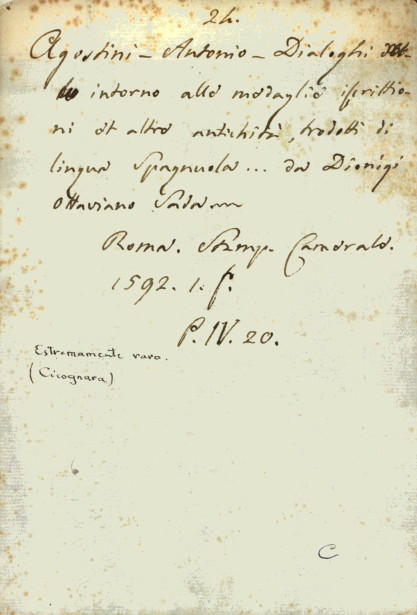 24.
Agostini - Antonio - Dialoghi
intorno alle medaglie iscrittio-
ni et altre antichità, tradotti di
lingua Spagnuola ... da Dionigi
Ottaviano Sada
Roma. Stamp. Camerale.
1592. 1. f.
P. IV. 20.
Estremamente raro.
(Cicognara)
C